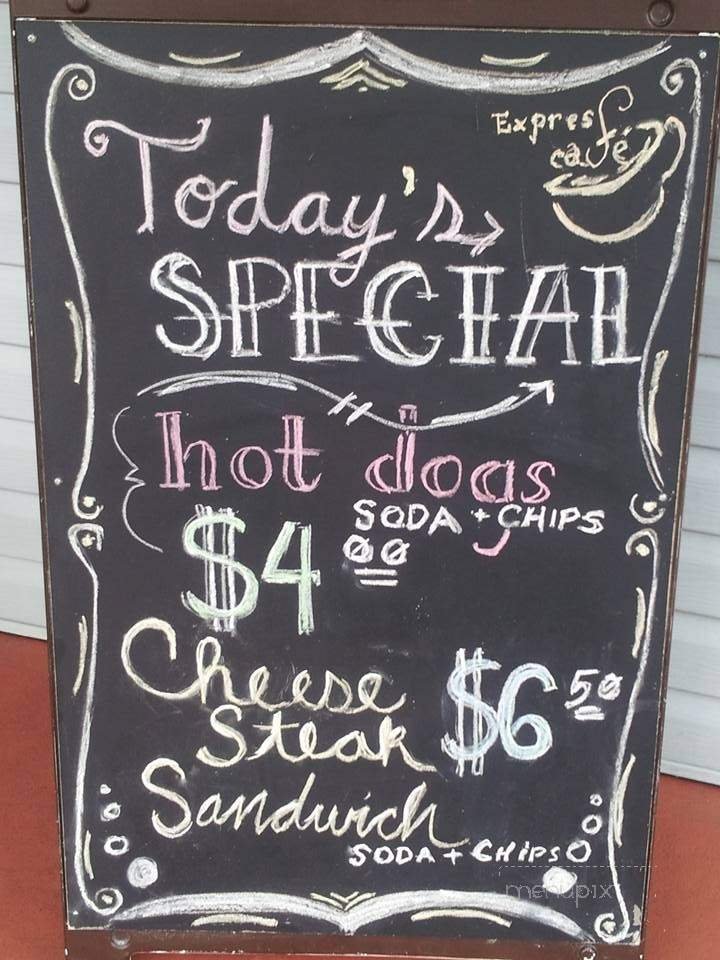 Express
café
Today's
SPECIAL
hot dogs
SODA + CHIPS
$4 00
Cheese
Steak
$6 50
Sandwich
SODA + CHIPS
menupix